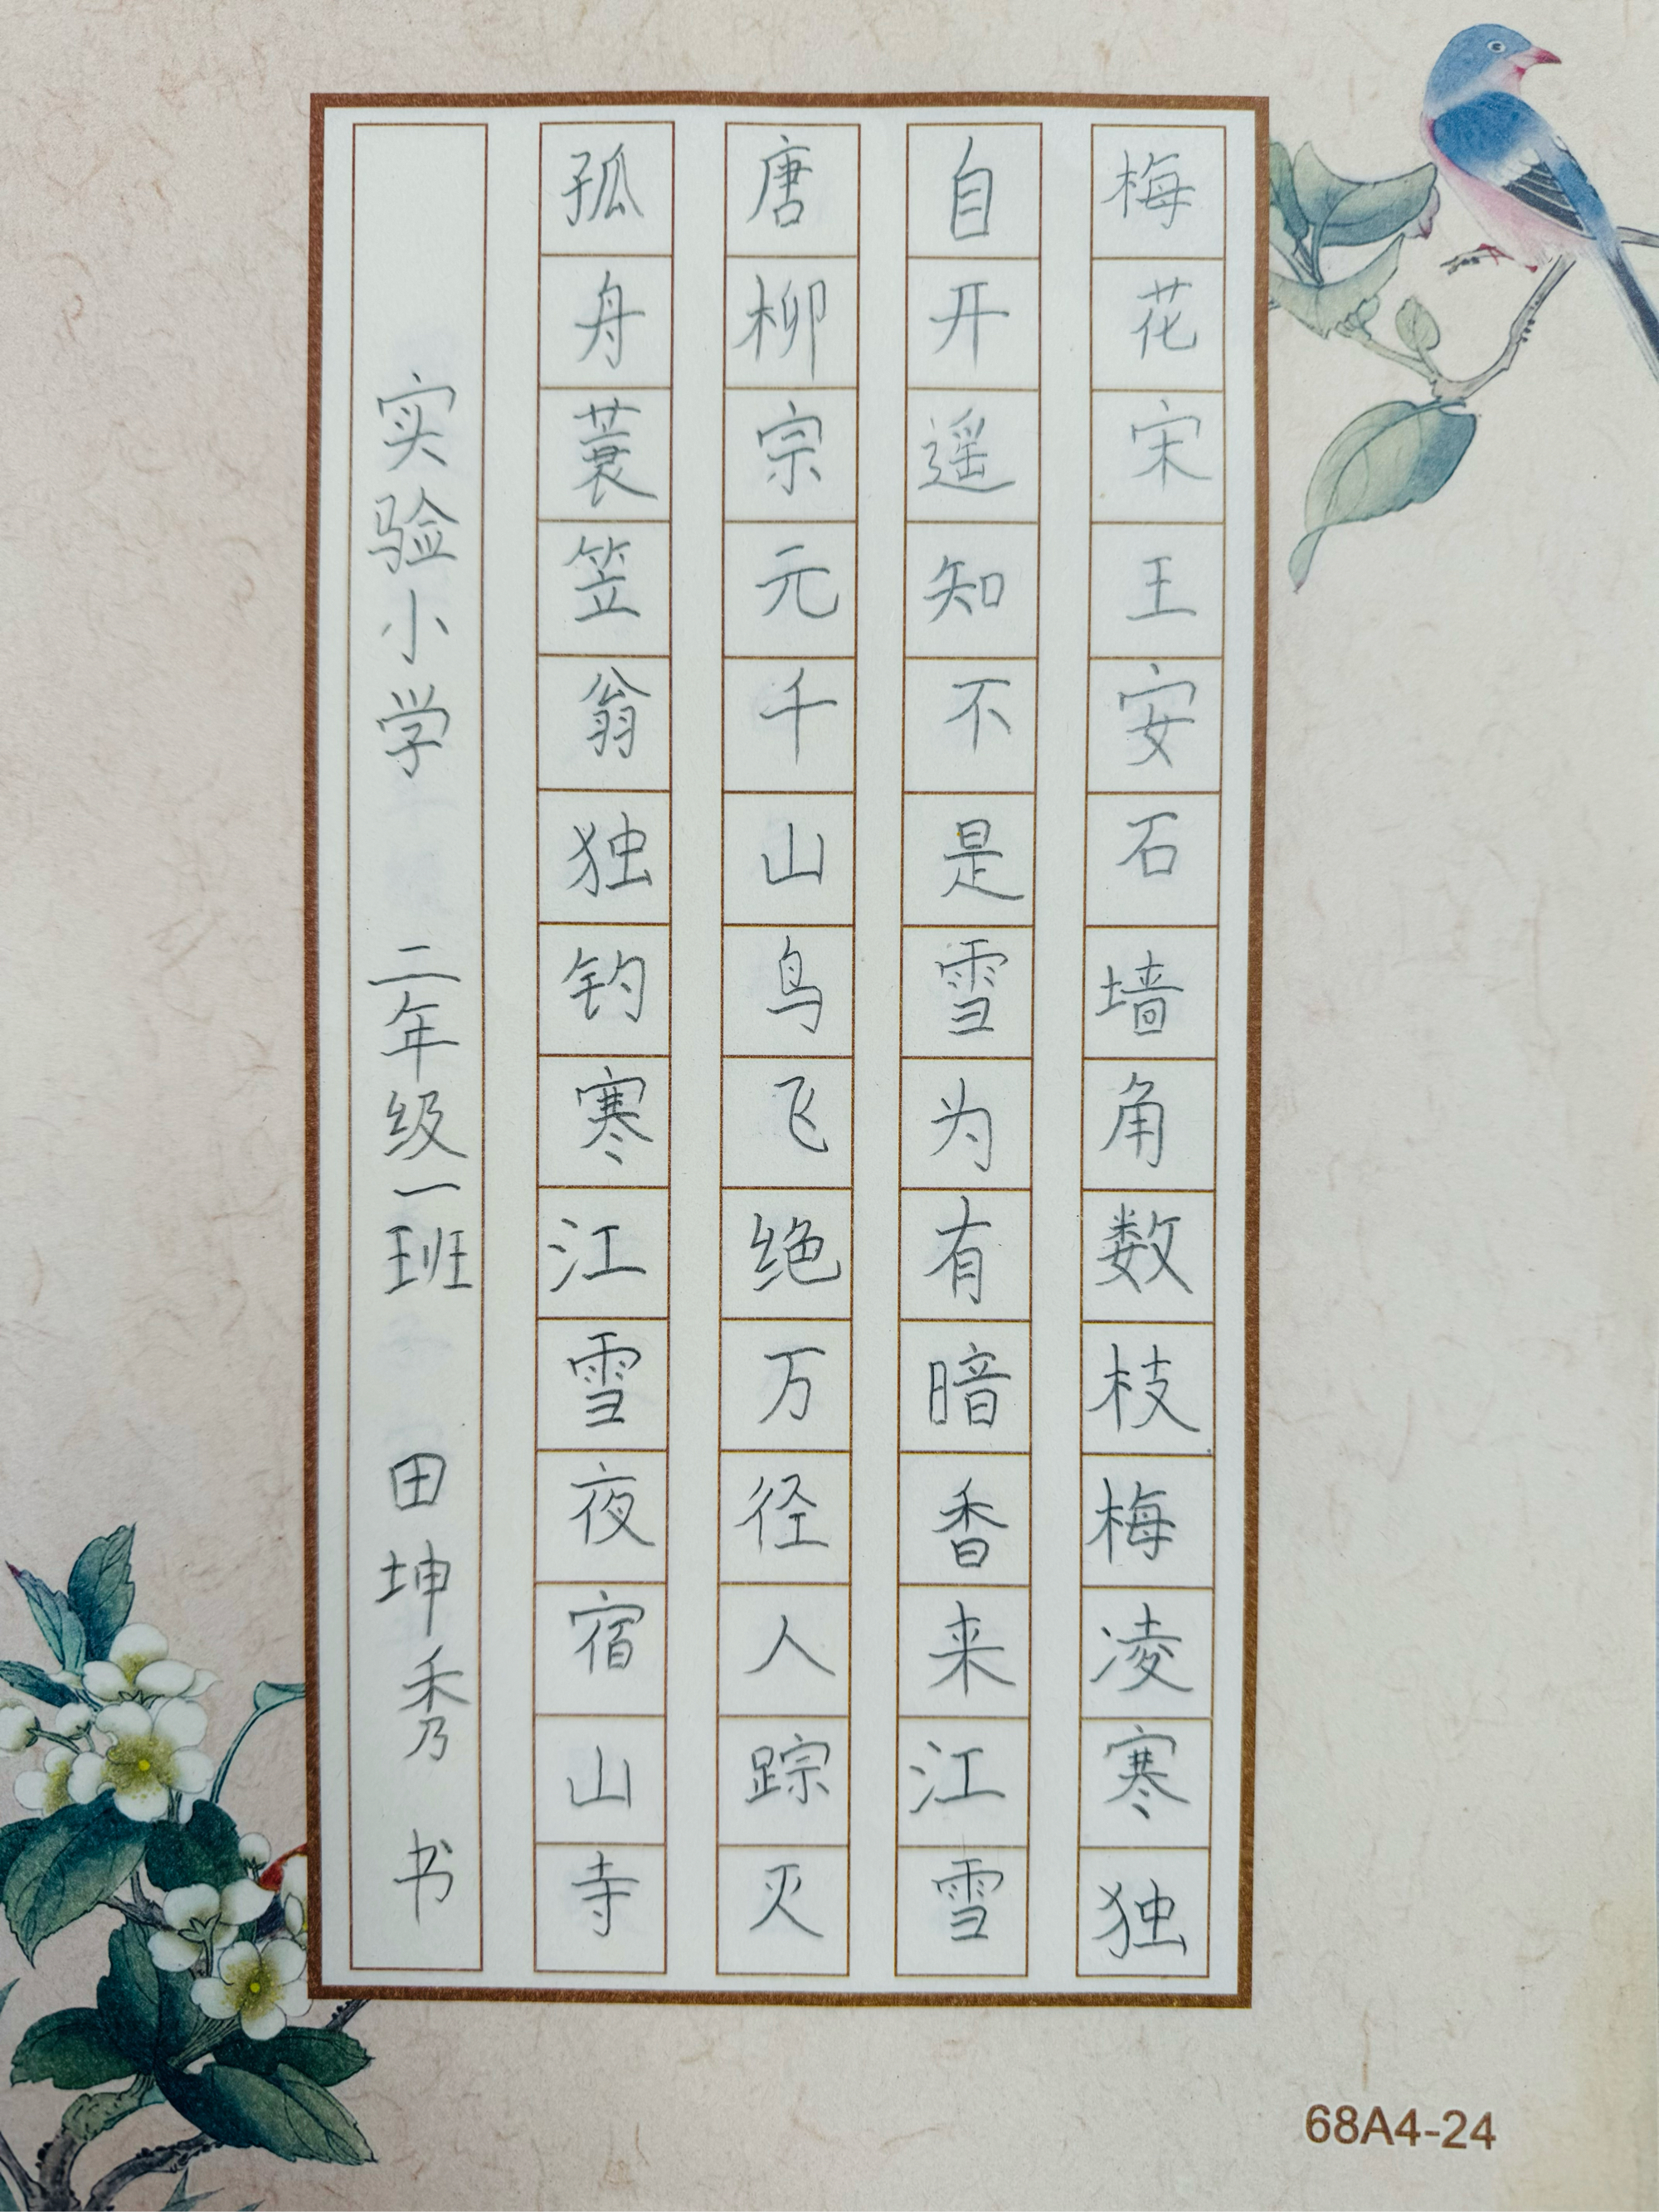 梅花宋王安石墙角数枝梅凌寒独
自开遥知不是雪为有暗香来江雪
唐柳宗元千山鸟飞绝万径人踪灭
孤舟蓑笠翁独钓寒江雪夜宿山寺
实验小学 二年级一班 田坤秀 书
68A4-24